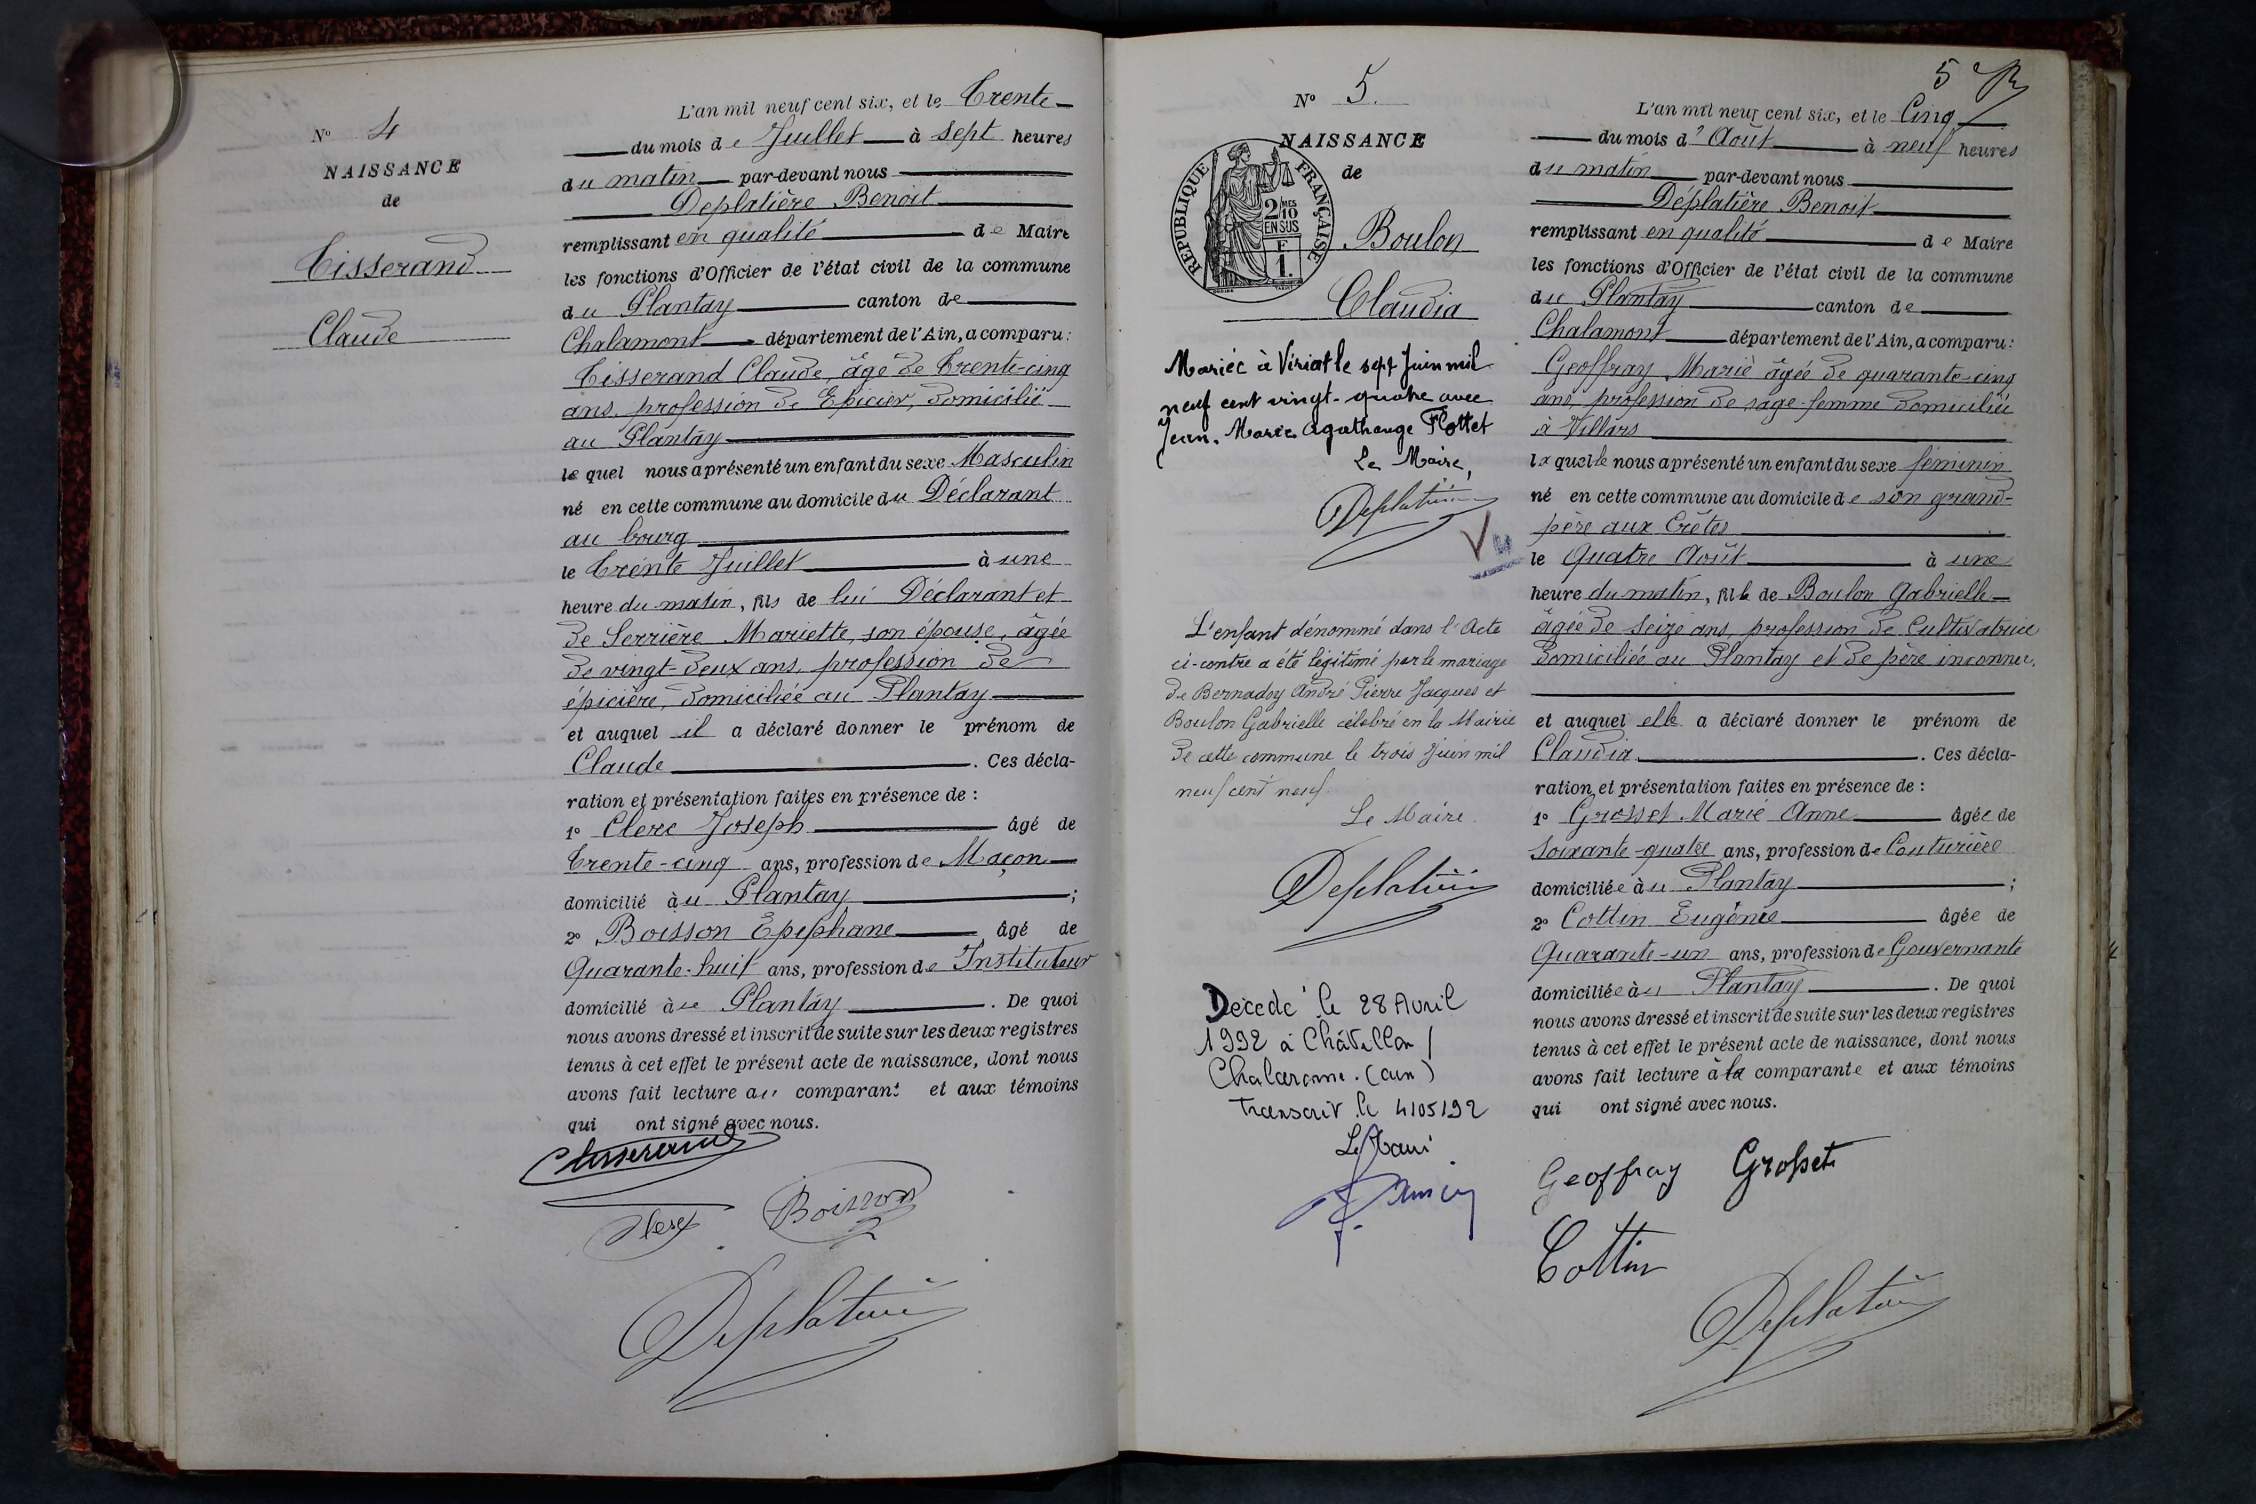 N° 4
NAISSANCE
de
Tisserand
Claude
L'an mil neuf cent six, et le Trente
du mois de Juillet à sept heures
du matin par-devant nous
Deplatière Benoit
remplissant en qualité de Maire
les fonctions d'Officier de l'état civil de la commune
du Plantay canton de
Chalamont département de l'Ain, a comparu:
Tisserand Claude, âgé de Trente-cinq
ans, profession de Epicier, domicilié
au Plantay
le quel nous a présenté un enfant du sexe Masculin
né en cette commune au domicile du Déclarant
au bourg
le Trente Juillet à une
heure du matin, fils de lui Déclarant et
de Serrière Mariette, son épouse, âgée
de vingt-deux ans, profession de
épicière, domiciliée au Plantay
et auquel il a déclaré donner le prénom de
Claude. Ces décla-
ration et présentation faites en présence de :
1° Clerc Joseph âgé de
Trente-cinq ans, profession de Maçon
domicilié au Plantay ;
2° Boisson Epiphane âgé de
Quarante-huit ans, profession de Instituteur
domicilié au Plantay. De quoi
nous avons dressé et inscrit de suite sur les deux registres
tenus à cet effet le présent acte de naissance, dont nous
avons fait lecture au comparant et aux témoins
qui ont signé avec nous.
Tisserand
Clerc Boisson
Deplatière
5
N° 5.
NAISSANCE
de
RÉPUBLIQUE FRANÇAISE
2/10 MES
EN SUS
F
1.
Boulon
Claudia
Mariée à Viriat le sept Juin mil
neuf cent vingt-quatre avec
Jean-Marie Agathange Flottet
Le Maire,
Deplatière
Vu
L'enfant dénommé dans l'Acte
ci-contre a été légitimé par le mariage
de Bernadoy André Pierre Jacques et
Boulon Gabrielle célébré en la Mairie
de cette commune le trois Juin mil
neuf cent neuf
Le Maire
Deplatière
Décédé le 28 Avril
1992 à Châtillon /
Chalaronne. (ain)
Transcrit le 4/05/92
Le Maire
L'an mil neuf cent six, et le Cinq
du mois d'Août à neuf heures
du matin par-devant nous
Déplatière Benoit
remplissant en qualité de Maire
les fonctions d'Officier de l'état civil de la commune
du Plantay canton de
Chalamont département de l'Ain, a comparu:
Geoffray Marie âgée de quarante-cinq
ans, profession de sage-femme domiciliée
à Villars
la quelle nous a présenté un enfant du sexe féminin
né en cette commune au domicile de son grand-
père aux Crêtes
le Quatre Août à une
heure du matin, fille de Boulon Gabrielle
âgée de seize ans, profession de Cultivatrice
domiciliée au Plantay et de père inconnu.
et auquel elle a déclaré donner le prénom de
Claudia. Ces décla-
ration et présentation faites en présence de :
1° Grosset Marie Anne âgée de
Soixante-quatre ans, profession de Couturière
domiciliée au Plantay ;
2° Cottin Eugénie âgée de
Quarante-un ans, profession de Gouvernante
domiciliée au Plantay. De quoi
nous avons dressé et inscrit de suite sur les deux registres
tenus à cet effet le présent acte de naissance, dont nous
avons fait lecture à la comparante et aux témoins
qui ont signé avec nous.
Geoffray Grosset
Cottin
Deplatière